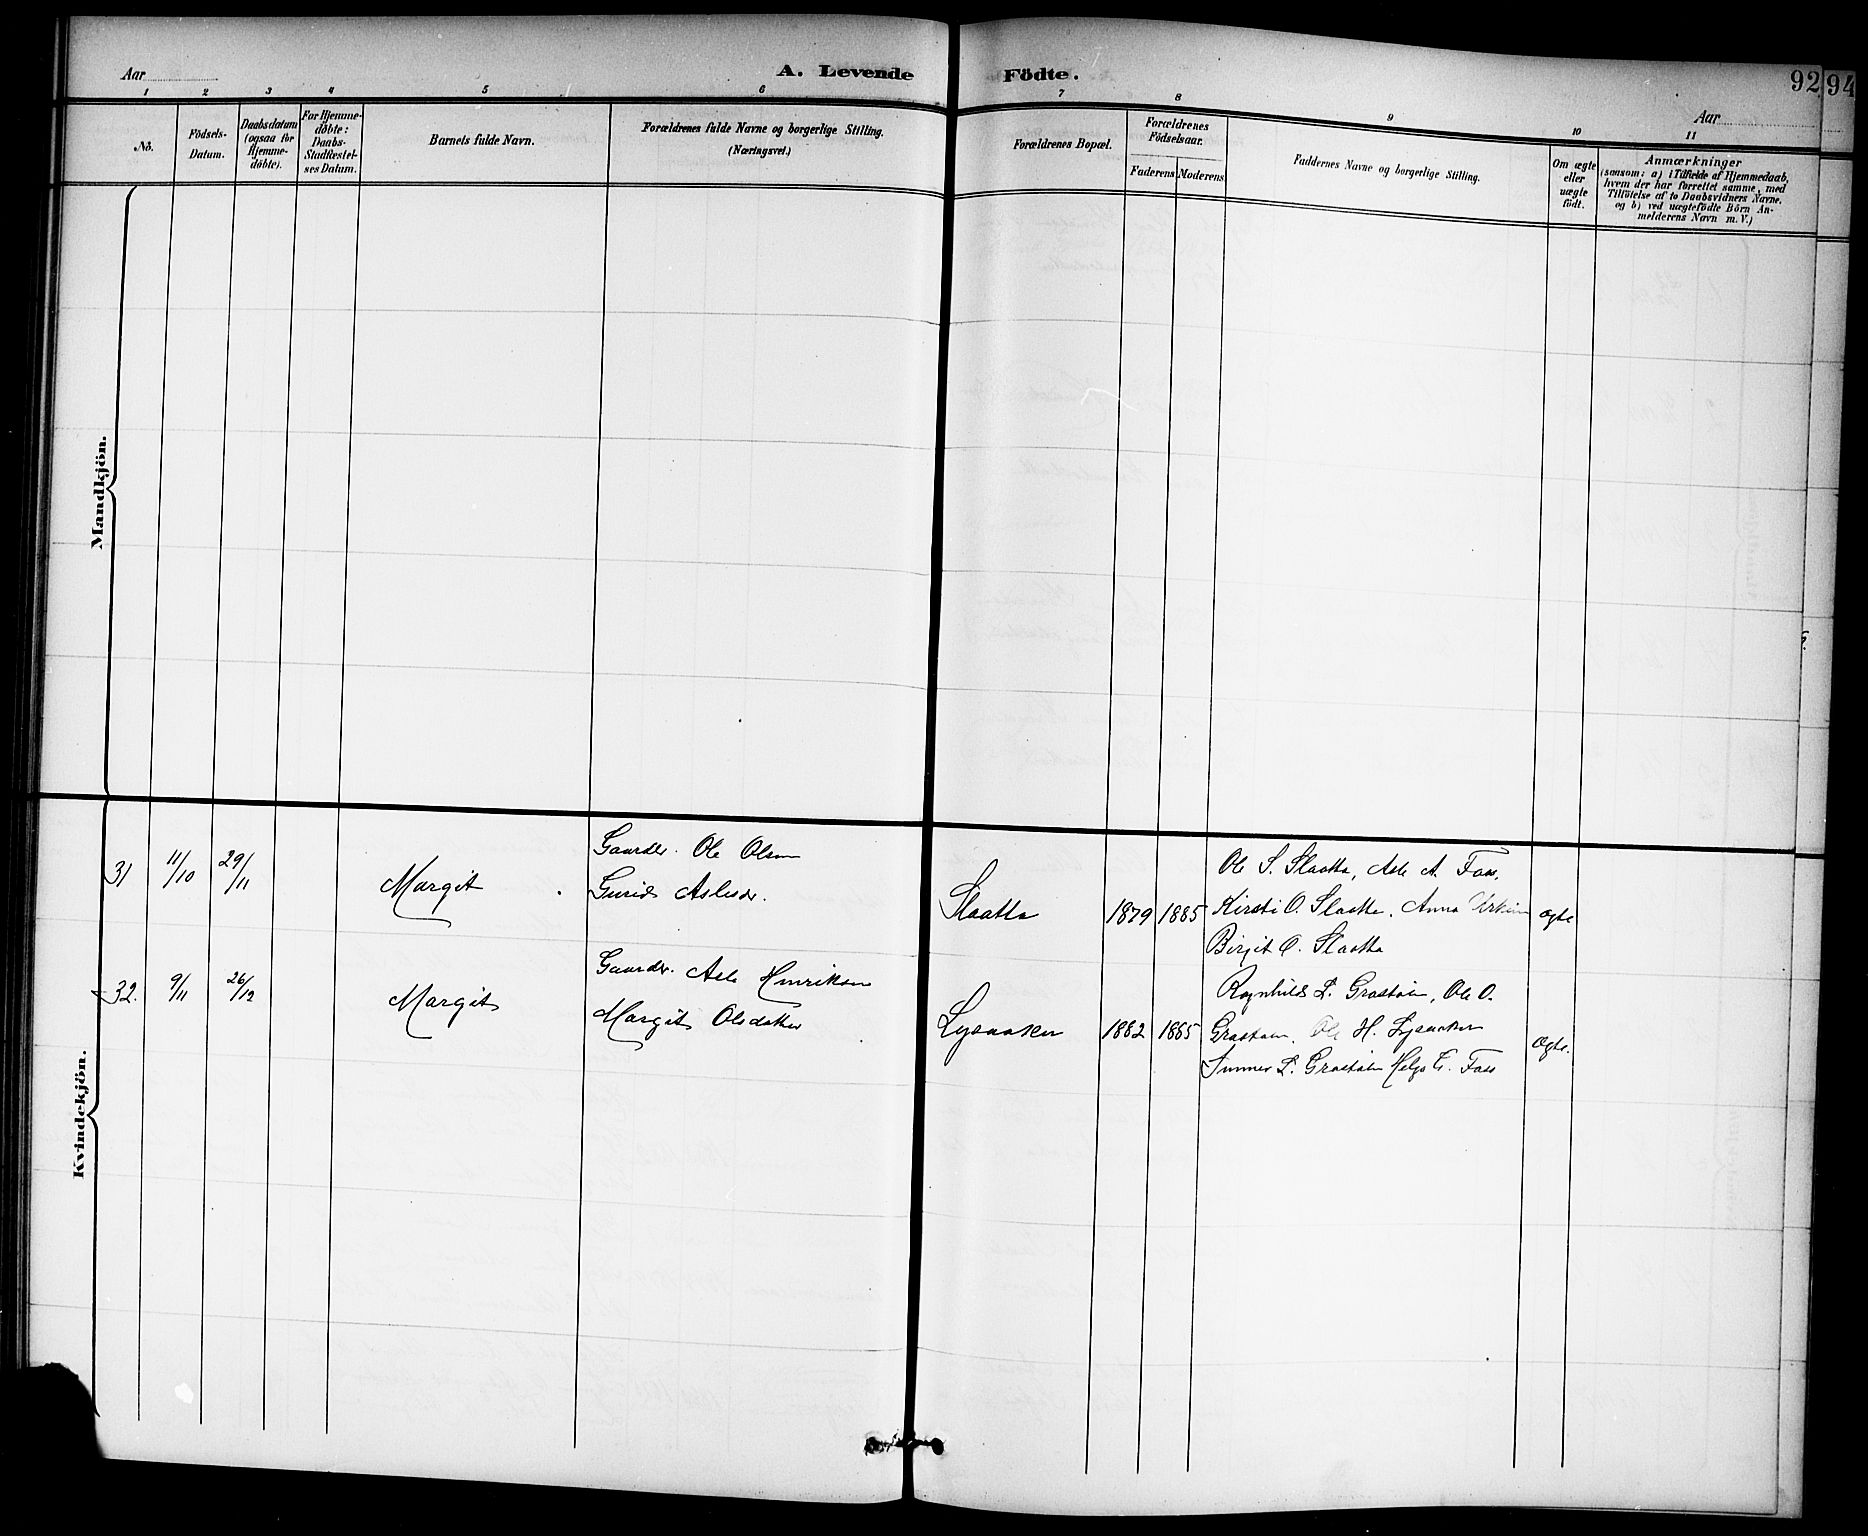 Aar
A. Levende Födte.
92 94
Aar
1 2 3 4 5 6 7 8 9 10 11
No.
Födsels-
Datum.
Daabsdatum
(ogsaa for
Hjemme-
døbte).
For Hjemme-
døbte:
Daabs-
Stadfestel-
ses Datum.
Barnets fulde Navn.
Forældrenes fulde Navne og borgerlige Stilling.
(Næringsvei.)
Forældrenes Bopæl.
Forældrenes
Födselsaar.
Faderens Moderens
Faddernes Navne og borgerlige Stilling.
Om ægte
eller
uægte
födt.
Anmærkninger
(saasom: a) i Tilfælde af Hjemmedaab,
hvem der har forrettet samme, med
Tilföielse af to Daabsvidners Navne,
og b) ved uægtefödte Börn An-
melderens Navn m. V.)
Mandkjön.
Kvindekjön.
31 11/10 29/11 Margit
Gaardbr. Ole Olsen
Gurid Aslesdr.
Slaatta 1879 1885
Ole S. Slaatta, Asle A. Foss,
Kirsti O. Slaatta, Anna
Birgit O. Slaatta
ægte
32. 9/11 26/12 Margit
Gaardbr. Asle Henriksen
Margit Olsdatter
Lysaaker 1882 1885
Ragnhild L. Grostøien, Ole O.
Grostøien, Ole H. Lysaaker
Gunner L. Grostøien Helge E. Foss
ægte.